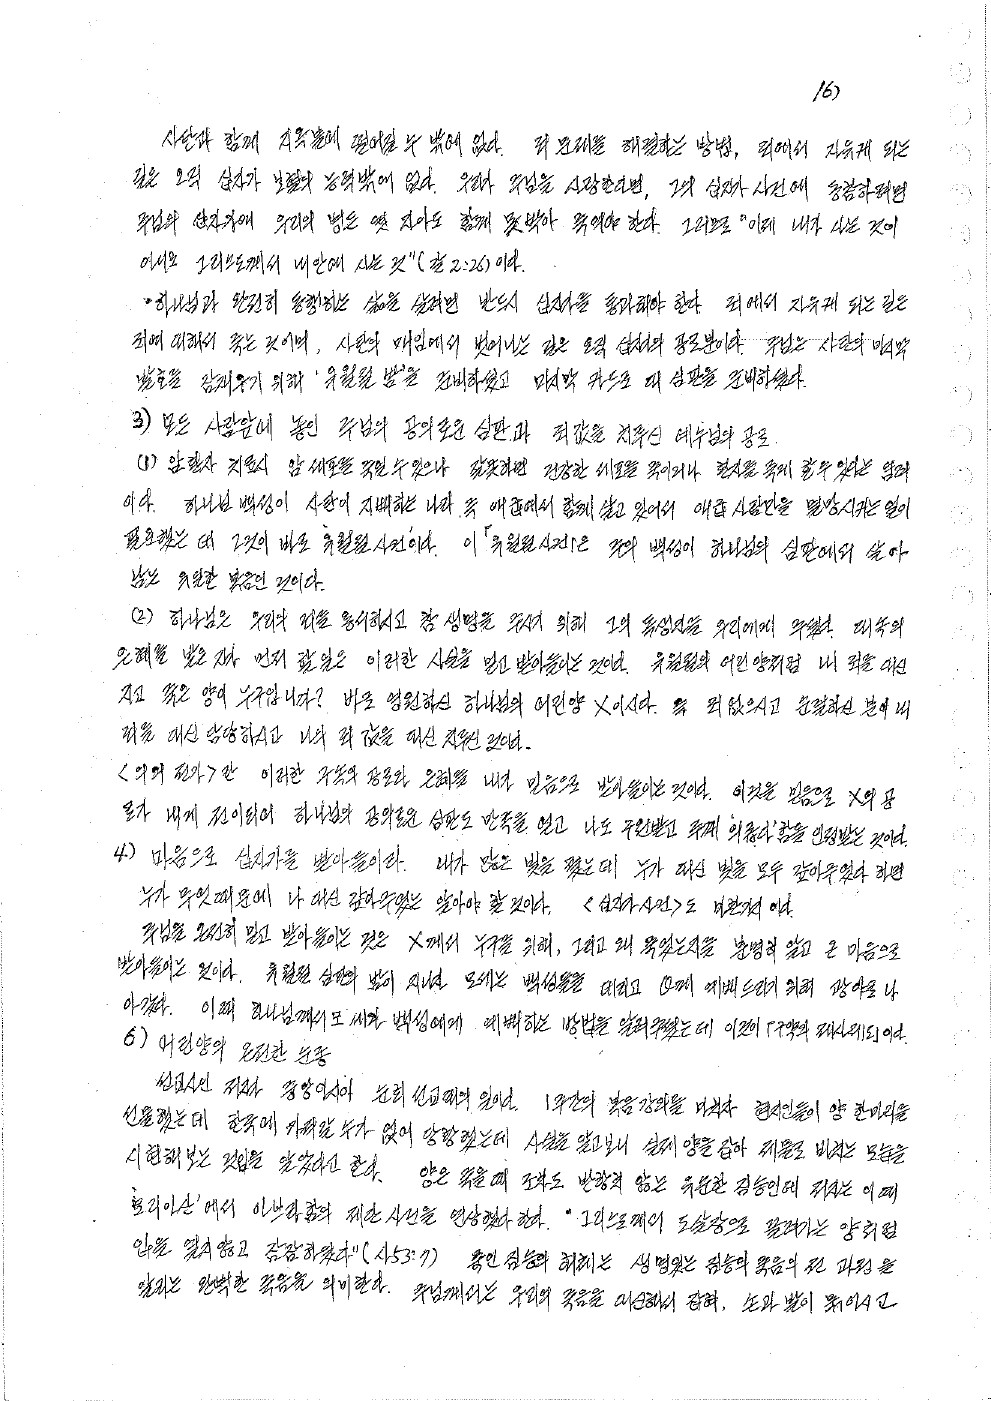 16)
사탄과 함께 지옥불에 떨어질 수 밖에 없다. 죄 문제를 해결하는 방법, 죄에서 자유케 되는
길은 오직 십자가 보혈의 능력밖에 없다. 우리가 주님을 사랑한다면, 그의 십자가 사건에 동참하려면
주님의 십자가에 우리의 병든 옛 자아도 함께 못박아 죽여야 한다. 그러므로 "이제 내가 사는 것이
아니요 그리스도께서 내 안에 사는 것"(갈 2:26)이다.
•하나님과 완전히 동행하는 삶을 살려면 반드시 십자가를 통과해야 한다 죄에서 자유케 되는 길은
죄에 대해서 죽는 것이며, 사탄의 매임에서 벗어나는 길은 오직 십자가의 공로뿐이다. 주님은 사탄의 마지막
발호를 잠재우기 위해 '유월절 밤'을 준비하셨고 마지막 카드로 대 심판을 준비하셨다.
3) 모든 사람앞에 놓인 주님의 공의로운 심판과 죄값을 치루신 예수님의 공로
(1) 암환자 치료시 암 세포를 죽일 수 있으나 잘못하면 건강한 세포를 죽이거나 환자를 죽게 할 수 있다는
이다. 하나님 백성이 사탄이 지배하는 나라 즉 애굽에서 함께 살고 있어서 애굽 사람만을 멸망시키는 일이
필요했는데 그것이 바로 유월절 사건이다. 이「유월절 사건」은 주의 백성이 하나님의 심판에서 살아
남는 위한 복음인 것이다.
(2) 하나님은 우리의 죄를 용서하시고 참 생명을 주시기 위해 그의 독생자를 우리에게 주셨다. 대속의
은혜를 받은 자가 먼저 할 일은 이러한 사실을 믿고 받아들이는 것이다. 유월절의 어린양처럼 내 죄를 대신
지고 죽은 양이 누구입니까? 바로 영원하신 하나님의 어린양 X이시다. 즉 죄 없으시고 순결하신 분이 내
죄를 대신 담당하시고 나의 죄 값을 대신 치루신 것이다.
<의의 전가>란 이러한 구속의 공로와 은혜를 내가 믿음으로 받아들이는 것이다. 이것을 믿음으로 X의 공
로가 내게 전이되어 하나님의 공의로운 심판도 만족을 얻고 나도 구원받고 주께 '의롭다'함을 인정받는 것이다.
4) 마음으로 십자가를 받아들이라. 내가 많은 빚을 졌는데 누가 대신 빚을 모두 갚아주었다 하면
누가 무엇때문에 나 대신 갚아주었는 알아야 할 것이다. <십자가 사건>도 마찬가지 이다.
주님을 온전히 믿고 받아들이는 것은 X께서 누구를 위해, 그리고 왜 죽었는지를 분명히 알고 온 마음으로
받아들이는 것이다. 유월절 심판의 밤이 지나면 모세는 백성들을 데리고 예배드리기 위해 광야로 나
아갔다. 이때 하나님께서 모세와 백성에게 예배하는 방법을 알려주셨는데 이것이「구약의 제사제도」이다.
6) 어린양의 온전한 순종
선교사인 저자가 중앙아시아 순회 선교때의 일이다. 1주간의 복음강좌를 마치자 현지인들이 양 한마리를
선물했는데 한국에 가져갈 수가 없어 당황했는데 사실을 알고보니 실제 양을 잡아 제물로 바치는 모습을
시현해 보는 것임을 알았다고 한다. 양은 죽을 때 조차도 반항치 않는 유순한 짐승인데 저자는 이때
'모리아산'에서 아브라함의 제단 사건을 연상했다 한다. "그리스도께서 도살장으로 끌려가는 양처럼
입을 열지 않고 잠잠하였다"(사53:7) 죽인 짐승의 사체는 생명있는 짐승의 죽음의 전 과정을
알리는 완벽한 죽음을 의미한다. 주님께서는 우리의 죽음을 대신해서 잡혀, 손과 발이 묶이시고